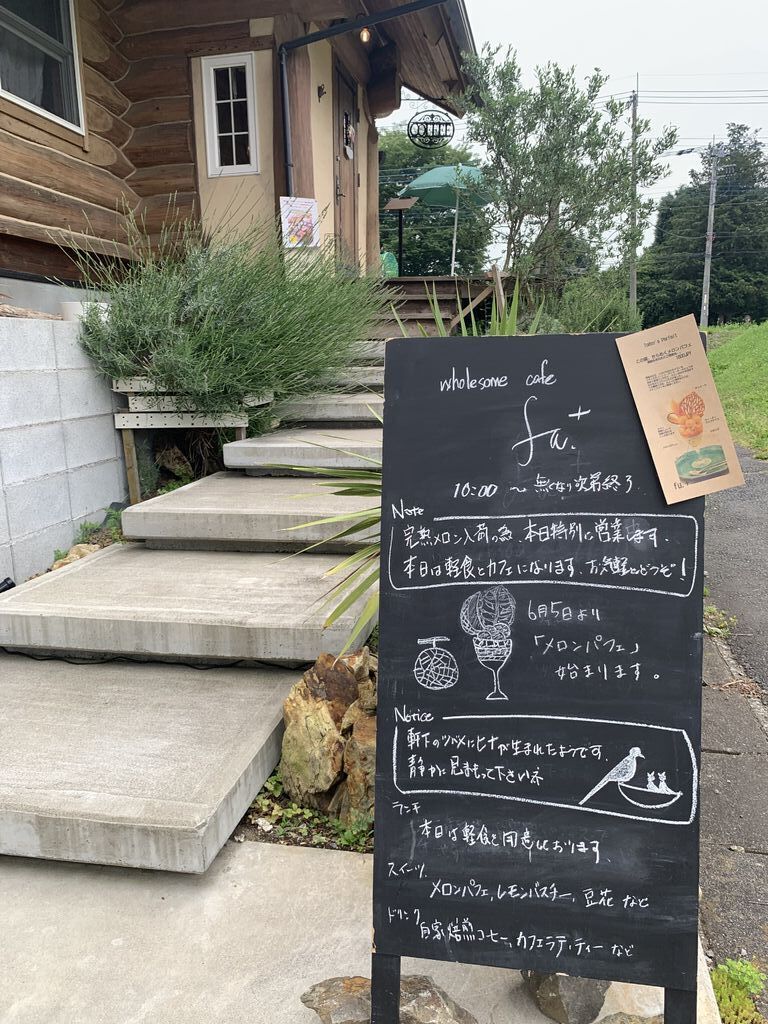 wholesome cafe
fu.+
10:00 ～ 無くなり次第終了
Note
完熟メロン入荷の為、本日特別に営業します。
本日は軽食とカフェになります。お気軽にどうぞ!
6月5日より
「メロンパフェ」
始まります。
Notice
軒下のツバメにヒナが生まれたようです。
静かに見まもって下さいネ
ランチ
本日は軽食を用意しております。
スイーツ
メロンパフェ, レモンバスチー, 豆花 など
ドリンク
自家焙煎コーヒー, カフェラテ, ティー など
fu.+